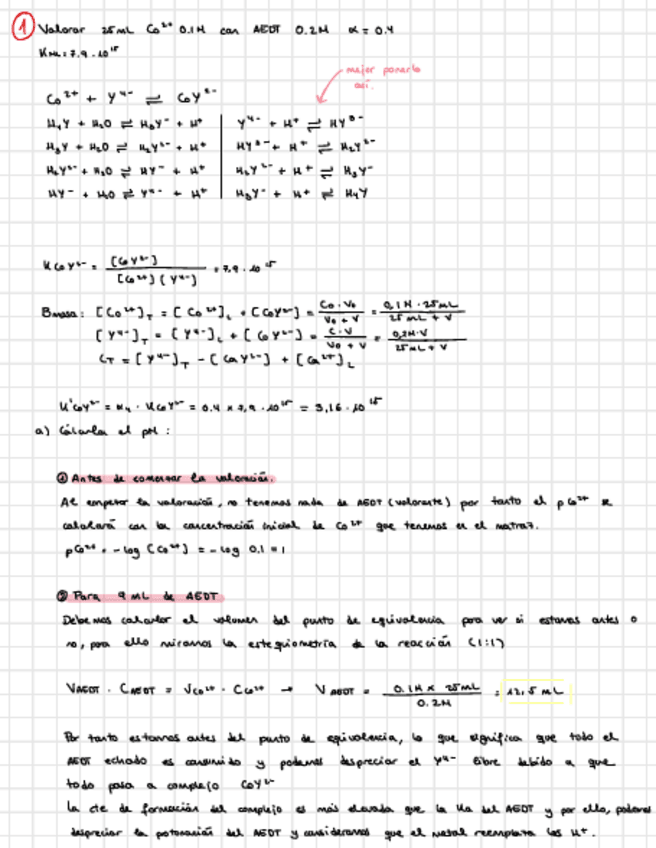 ① Valorar 25mL Co²⁺ 0.1M con AEDT 0.2M α = 0.4
K ML = 7,9 · 10¹⁵
mejor ponerlo
así.
Co²⁺ + Y⁴⁻ ⇌ CoY²⁻
H₄Y + H₂O ⇌ H₃Y⁻ + H⁺ | Y⁴⁻ + H⁺ ⇌ HY³⁻
H₃Y + H₂O ⇌ H₂Y²⁻ + H⁺ | HY³⁻ + H⁺ ⇌ H₂Y²⁻
H₂Y²⁻ + H₂O ⇌ HY⁻ + H⁺ | H₂Y²⁻ + H⁺ ⇌ H₃Y⁻
HY⁻ + H₂O ⇌ Y⁴⁻ + H⁺ | H₃Y⁻ + H⁺ ⇌ H₄Y
K CoY²⁻ = [CoY²⁻] / [Co²⁺] [Y⁴⁻] = 7,9 · 10¹⁵
Bmasa: [Co²⁺]T = [Co²⁺]L + [CoY²⁻] = Co · Vo / Vo + V = 0,1M · 25mL / 25mL + V
[Y⁴⁻]T = [Y⁴⁻]L + [CoY²⁻] = C · V / Vo + V = 0,2M · V / 25mL + V
CT = [Y⁴⁻]T - [CoY²⁻] + [Co²⁺]L
K'CoY²⁻ = α₄ · K CoY²⁻ = 0.4 x 7,9 · 10¹⁵ = 3,16 · 10¹⁵
a) Calcula el pM :
① Antes de comenzar la valoración.
Al empezar la valoración, no tenemos nada de AEDT (valorante) por tanto el pCo²⁺ se
calculará con la concentración inicial de Co²⁺ que tenemos en el matraz.
pCo²⁺ = -log [Co²⁺] = -log 0.1 = 1
② Para 9 mL de AEDT
Debemos calcular el volumen del punto de equivalencia para ver si estamos antes o
no, para ello miramos la estequiometría de la reacción (1:1)
VAEDT · CAEDT = VCo²⁺ · CCo²⁺ → VAEDT = 0.1M x 25mL / 0.2M = 12,5 mL
Por tanto estamos antes del punto de equivalencia, lo que significa que todo el
AEDT echado es consumido y podemos despreciar el Y⁴⁻ libre debido a que
todo pasa a complejo CoY²⁻
La cte de formación del complejo es más elevada que la Ka del AEDT y por ello, podemos
despreciar la protonación del AEDT y consideramos que el metal reemplaza los H⁺.